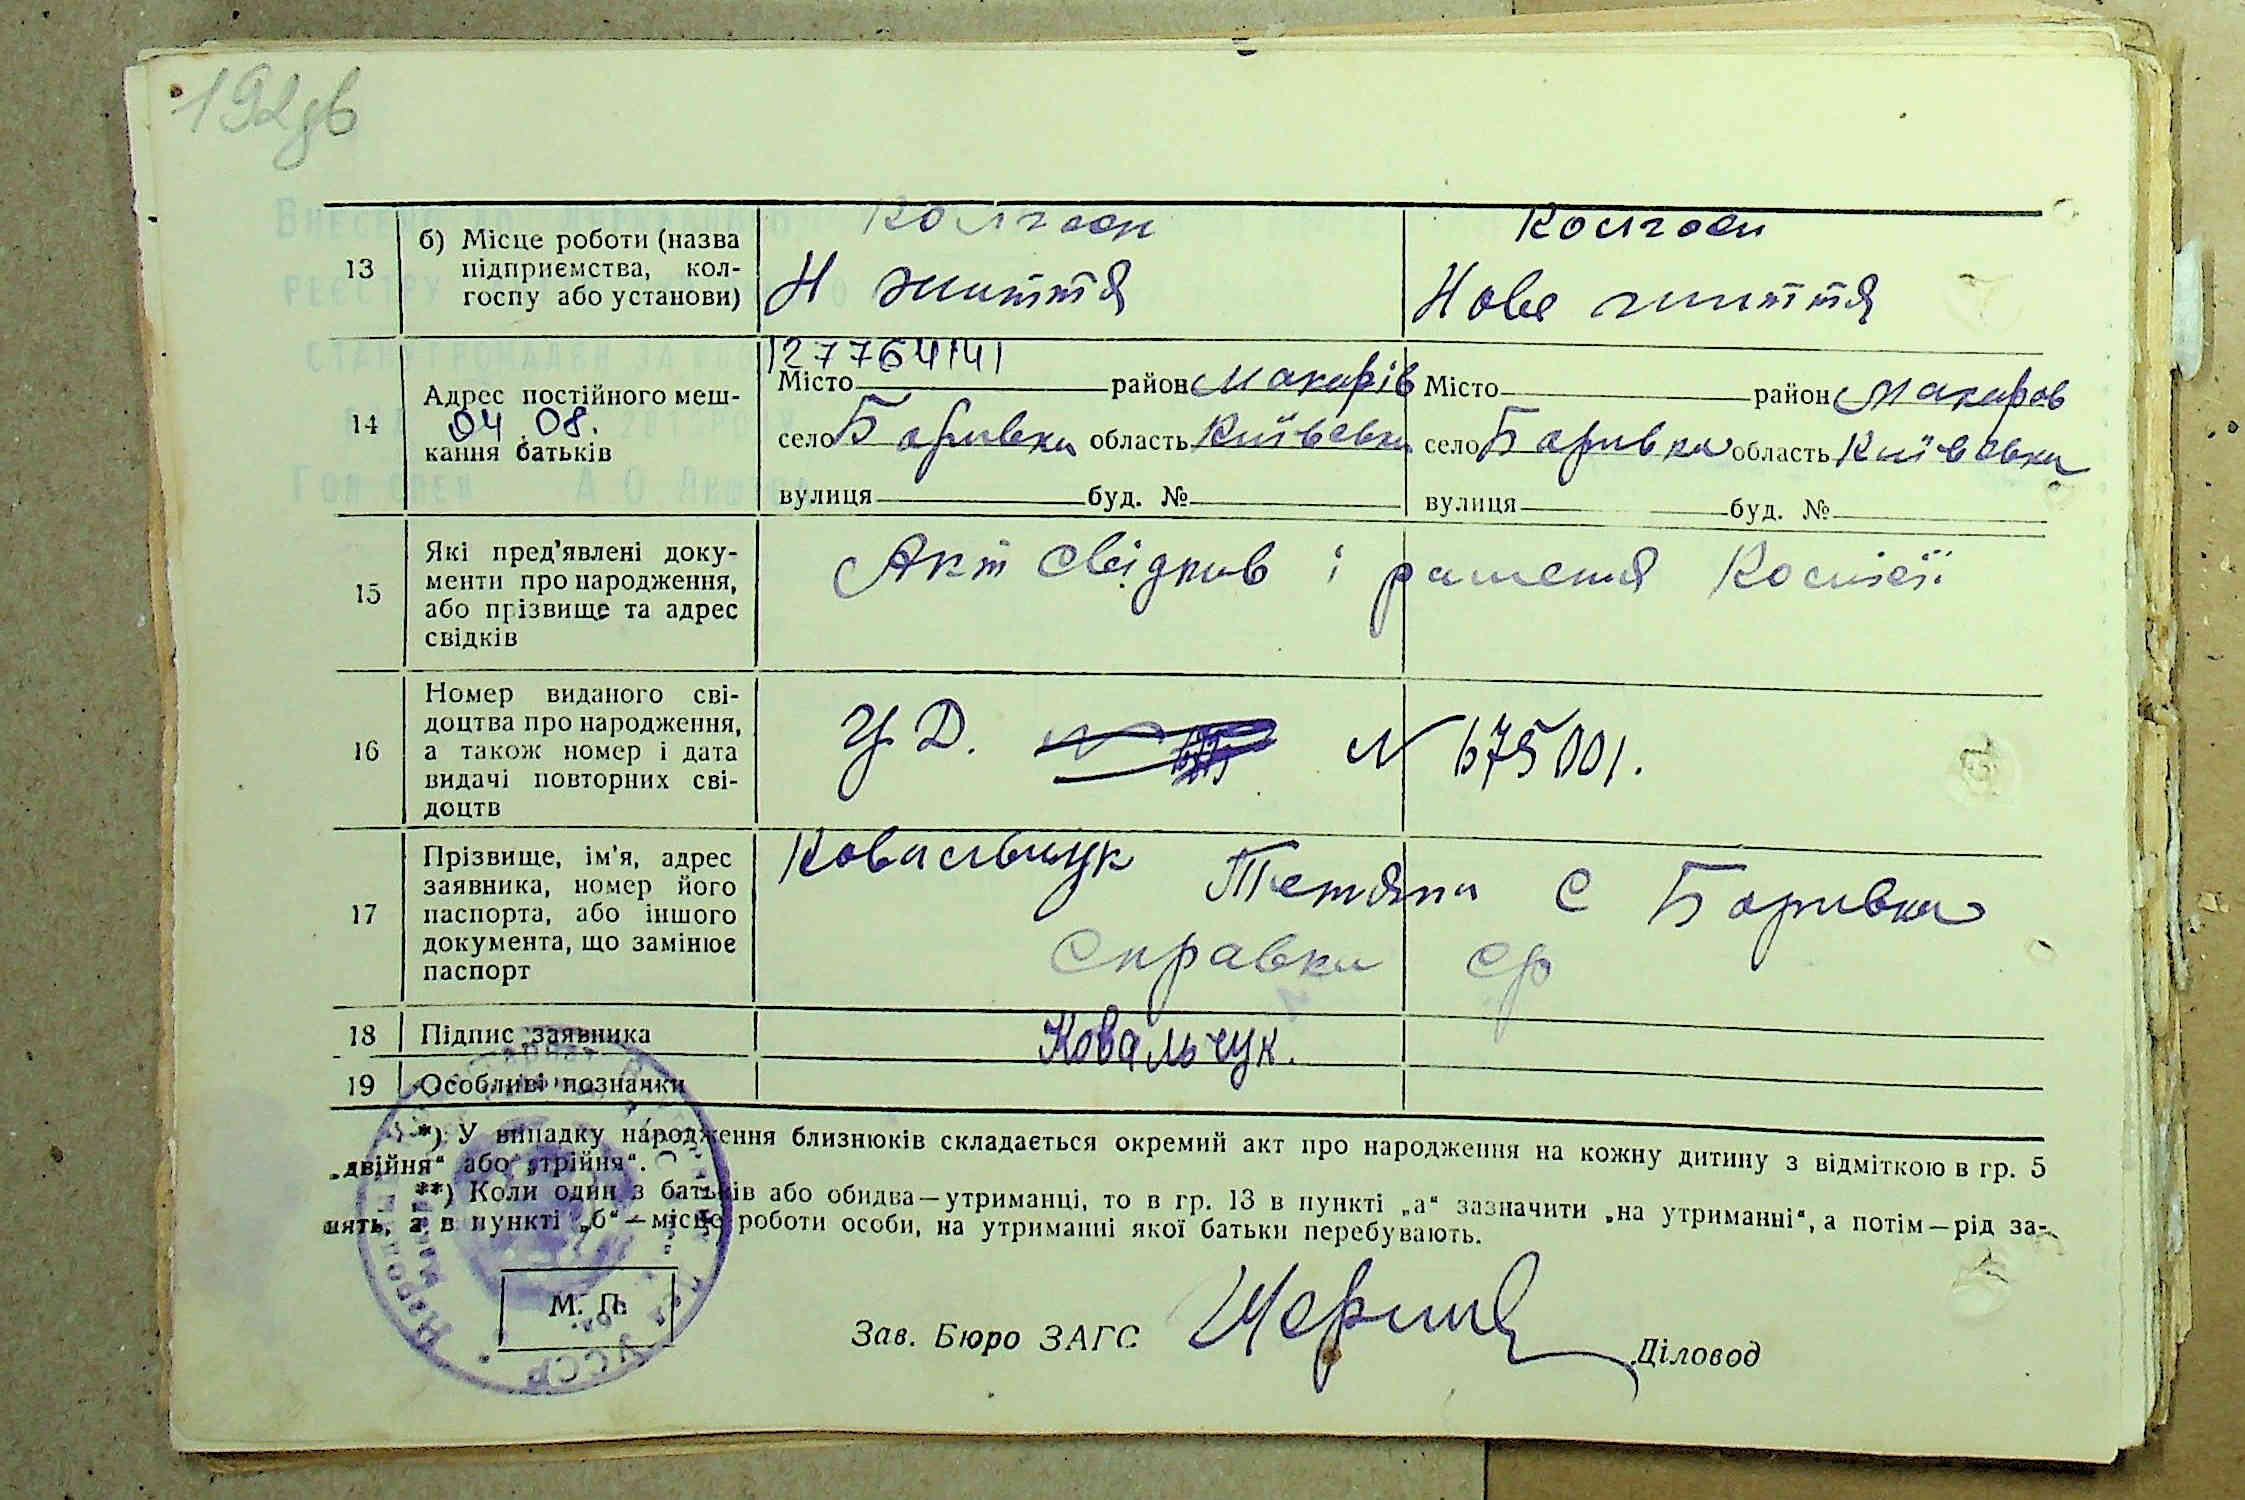 192 зв
13
б) Місце роботи (назва
підприємства, кол-
госпу або установи)
Колгосп
Н життя
Колгосп
Нове життя
14
Адрес постійного меш-
04 08.
кання батьків
127764141
Місто район Макарів
село Борівка область Київська
вулиця буд. №
Місто район Макаров
село Борівка область Київська
вулиця буд. №
15
Які пред'явлені доку-
менти про народження,
або прізвище та адрес
свідків
Акт свідків і рашення Комісії
16
Номер виданого сві-
доцтва про народження,
а також номер і дата
видачі повторних сві-
доцтв
УД. N 675001.
17
Прізвище, ім'я, адрес
заявника, номер його
паспорта, або іншого
документа, що замінює
паспорт
Ковальчук Тетяна с Борівка
Справка ср
18
Підпис заявника
Ковальчук.
19
Особливі позначки
*) У випадку народження близнюків складається окремий акт про народження на кожну дитину з відміткою в гр. 5
„двійня“ або „трійня“.
**) Коли один з батьків або обидва—утриманці, то в гр. 13 в пункті „а“ зазначити „на утриманні“, а потім—рід за-
нять, а в пункті „б“—місце роботи особи, на утриманні якої батьки перебувають.
М. П.
Зав. Бюро ЗАГС
Діловод
УССР